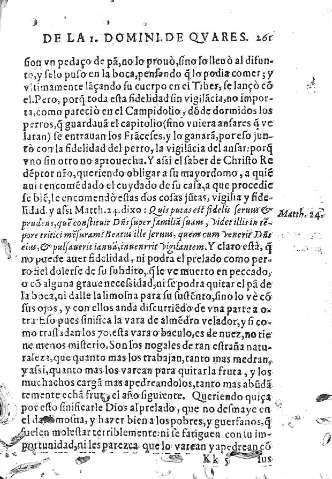 DE LA I. DOMINI. DE QVARES. 261
sion vn pedaço de pã, no lo prouò, sino lleuò al difun-
to, y se lo puso en la boca, pensando q̃ lo podia comer; y
vltimamente lãçando su cuerpo en el Tiber, se lançò cõ
el. Pero, porq̃ toda esta fidelidad sin vigilãcia, no impor-
ta, como pareciò en el Campidolio, dõde dormidos los
perros, q̃ guardauã el capitolio (sino vuiera ansares q̃ ve
laran) se entrauan los Frãceses, y lo ganarã, por eso jun-
tò con la fidelidad del perro, la vigilãcia del ansar: porq̃
vno sin otro no aprouecha. Y assi el saber de Christo Re
deptor nr̃o, queriendo obligar a su mayordomo, a quiẽ
aui recomẽdado el cuydado de su casa, a que procedie
se biẽ, le encomendò estas dos cosas jũtas, vigilia y fide-
lidad. y assi Matth. 24. dixo: Quis putas est fidelis seruus &
prudens, quẽ constituit Dñs super familiã suam,
Matth. 24.
Beatus ille seruus, quem cum venerit Dñs
eius, & pulsauerit ianuã, inuenerit vigilantem. Y claro estã, q̃
no puede auer fidelidad, ni podra el prelado como per-
ro fiel dolerse de su subdito, q̃ le ve muerto en peccado,
o cõ alguna graue necessidad, ni se podra quitar el pã de
la boca, ni dalle la limosna para su sustẽto, sino lo vè cõ
sus ojos, y con ellos anda discurriẽdo de vna parte a o-
tra. Eso pues sinifica la vara de almẽdro velador, y si co-
mo trasladan los 70. esta vara o baculo, es de nuez, no tie
ne menos misterio. Son los nogales de tan estraña natu-
raleza, que quanto mas los trabajan, tanto mas medran,
y assi, quanto mas los varean para quitarla fruta, y los
muchachos cargã mas apedreandolos, tanto mas abũdã
temente echã frut, el año siguiente. Queriendo quiça
por esto sinificarle Dios al prelado, que no desmaye en
el da limosna, y hazer bien a los pobres, y guerfanos, q̃
suelen molestar terriblemente: ni se fatiguen con su im-
portunidad, ni les parezca que lo varean y apedrean cõ
Kk 5 sus